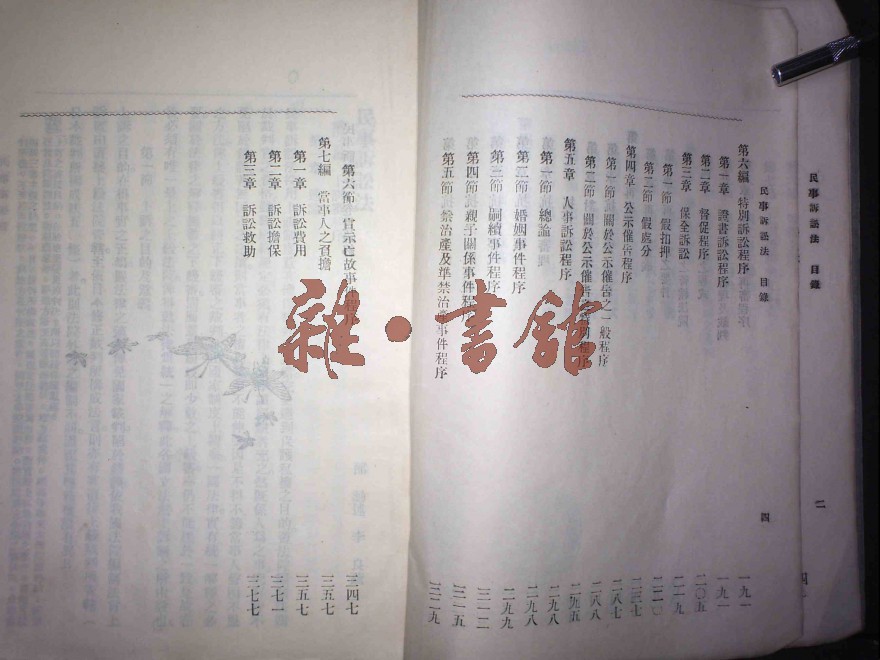 民事訴訟法 目錄 二
四
民事訴訟法 目錄 四
第六編 特別訴訟程序 一九一
第一章 證書訴訟程序 一九一
第二章 督促程序 二〇五
第三章 保全訴訟 二一九
第一節 假扣押 二二〇
第二節 假處分 二三七
第四章 公示催告程序 二八七
第一節 關於公示催告之一般程序 二八八
第二節 關於公示催告之特別程序 二九五
第五章 人事訴訟程序 二九八
第一節 總論 二九八
第二節 婚姻事件程序 二九九
第三節 嗣續事件程序 三一二
第四節 親子關係事件程序 三一五
第五節 禁治產及準禁治產事件程序 三二九
第六節 宣示亡故事件程序 三四七
第七編 當事人之負擔 三五七
第一章 訴訟費用 三五七
第二章 訴訟擔保 三七一
第三章 訴訟救助 三七七
雜·書館